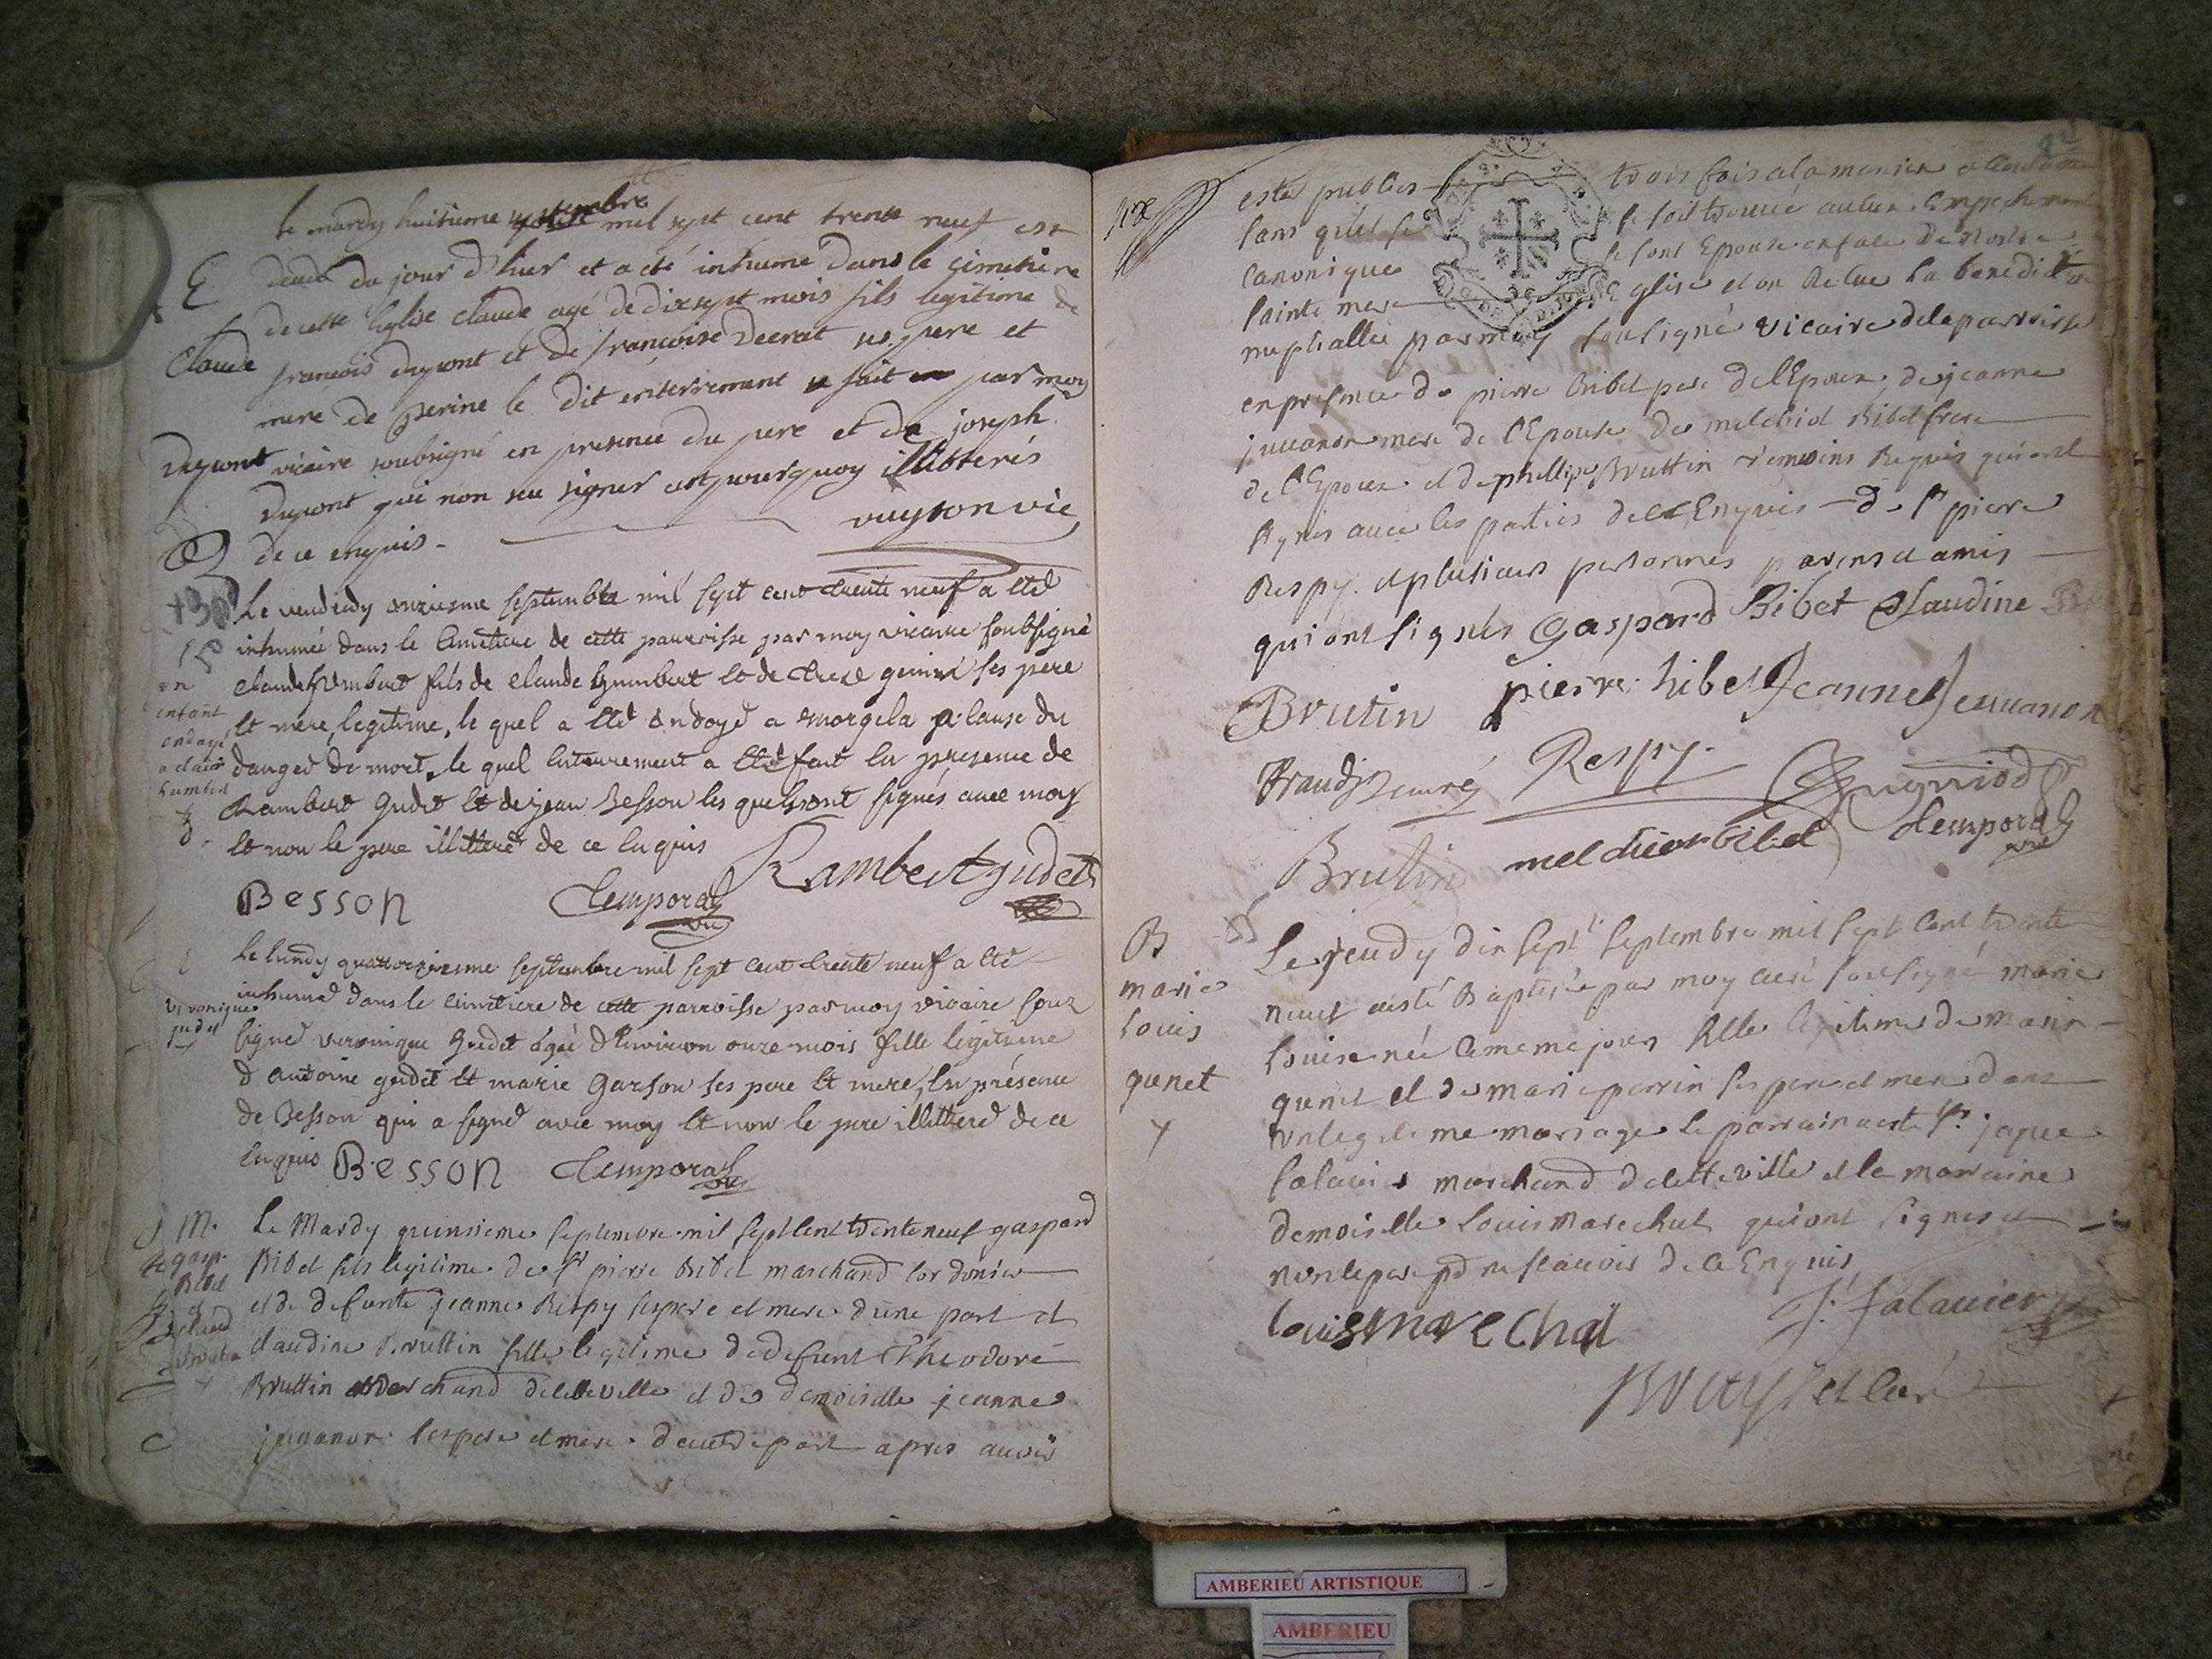 le mardy huitieme septembre mil sept cent trente neuf est
E
decedé du jour d'hier et a eté inhumé dans le cimetiere
de cette Eglise claude agé de dix sept mois fils legitime de
Claude
francois dupont et de francoise Decrat ses pere et
mere de perine le dit enterrement fait par moy
Dupont
vicaire soubsigné en presence du pere et de joseph
Dupont qui non seu signer illitterés
de ce enquis -
vuyton vic
Le vendredy onzieme septembre mil sept cent trente neuf a eté
inhumé dans le Cimetiere de cette parroisse par moy vicaire soubsigné
claude humbert fils de claude humbert et de ses pere
et mere legitime, le quel a eté ondoyé a morgela a cause du
danger de mort, le quel enterrement a eté fait en presence de
Rambert Gudet et de jean Besson les quels ont signés avec moy
et non le pere illitteré de ce enquis
un
enfant
ondoyé
a claude
humbert
Rambert gudet
Besson
Temporal
vic
Le lundy quatorzieme septembre mil sept cent trente neuf a eté
inhumé dans le cimetiere de cette parroisse par moy vicaire sous
veronique
judet
signé veronique Gudet agée d'environ onze mois fille legitime
d'antoine gudet et marie Garson ses pere et mere, en présence
de Besson qui a signé avec moy et non le pere illitteré de ce
enquis Besson Temporal
vic
M.
de gasp.
Bibet
et
claud
Brutin
Le Mardy quinsieme septembre mil sept cent trente neuf gaspard
Bibet fils legitime de Sr pierre Bibet marchand cordonier
et de defunte jeanne Respy ses pere et mere d'une part et
claudine Bruttin fille legitime de defunt Theodore
Bruttin marchand de cette ville et de demoiselle jeanne
juvanon ses pere et mere d'autre part apres avoir
esté publies trois fois a la maniere accoutumé
sans qu'il se se soit trouvé aucun Empechement
canonique se sont Epousé en face de nostre
sainte mere Eglise et on Recue la benediction
nuptialle par moy soussigné vicaire de la parroisse
en presence de pierre Bibet pere de l'Epoux, de jeanne
juvanon mere de l'Epouse de melchiol Bibet frere
de l'Epoux et de phillipe Bruttin temoins Requis qui ont
signés avec les parties de ce Enquis - de Sr pierre
Respy et plusieurs personnes parens et amis
qui ont signés Gaspard Bibet Claudine
Brutin pierre bibet Jeanne Jeuvanon
Respy
Brutin melchior bibet Temporal
vic
B
marie
Louis
qunet
Le jeudy dix sept septembre mil sept cent trente
neuf a esté Baptisée par moy curé soussigné marie
Louise née le meme jour fille legitime de marin
qunet et de marie perrin ses pere et mere dans
un legitime mariage le parrain a esté Sr jaque
falavier marchand de cette ville et la marraine
demoiselle Louis Marechal qui ont signés et
non le pere pr ne scavoir de ce Enquis
louis marechal
J: falavier
Bruyset curé
AMBERIEU ARTISTIQUE
AMBERIEU